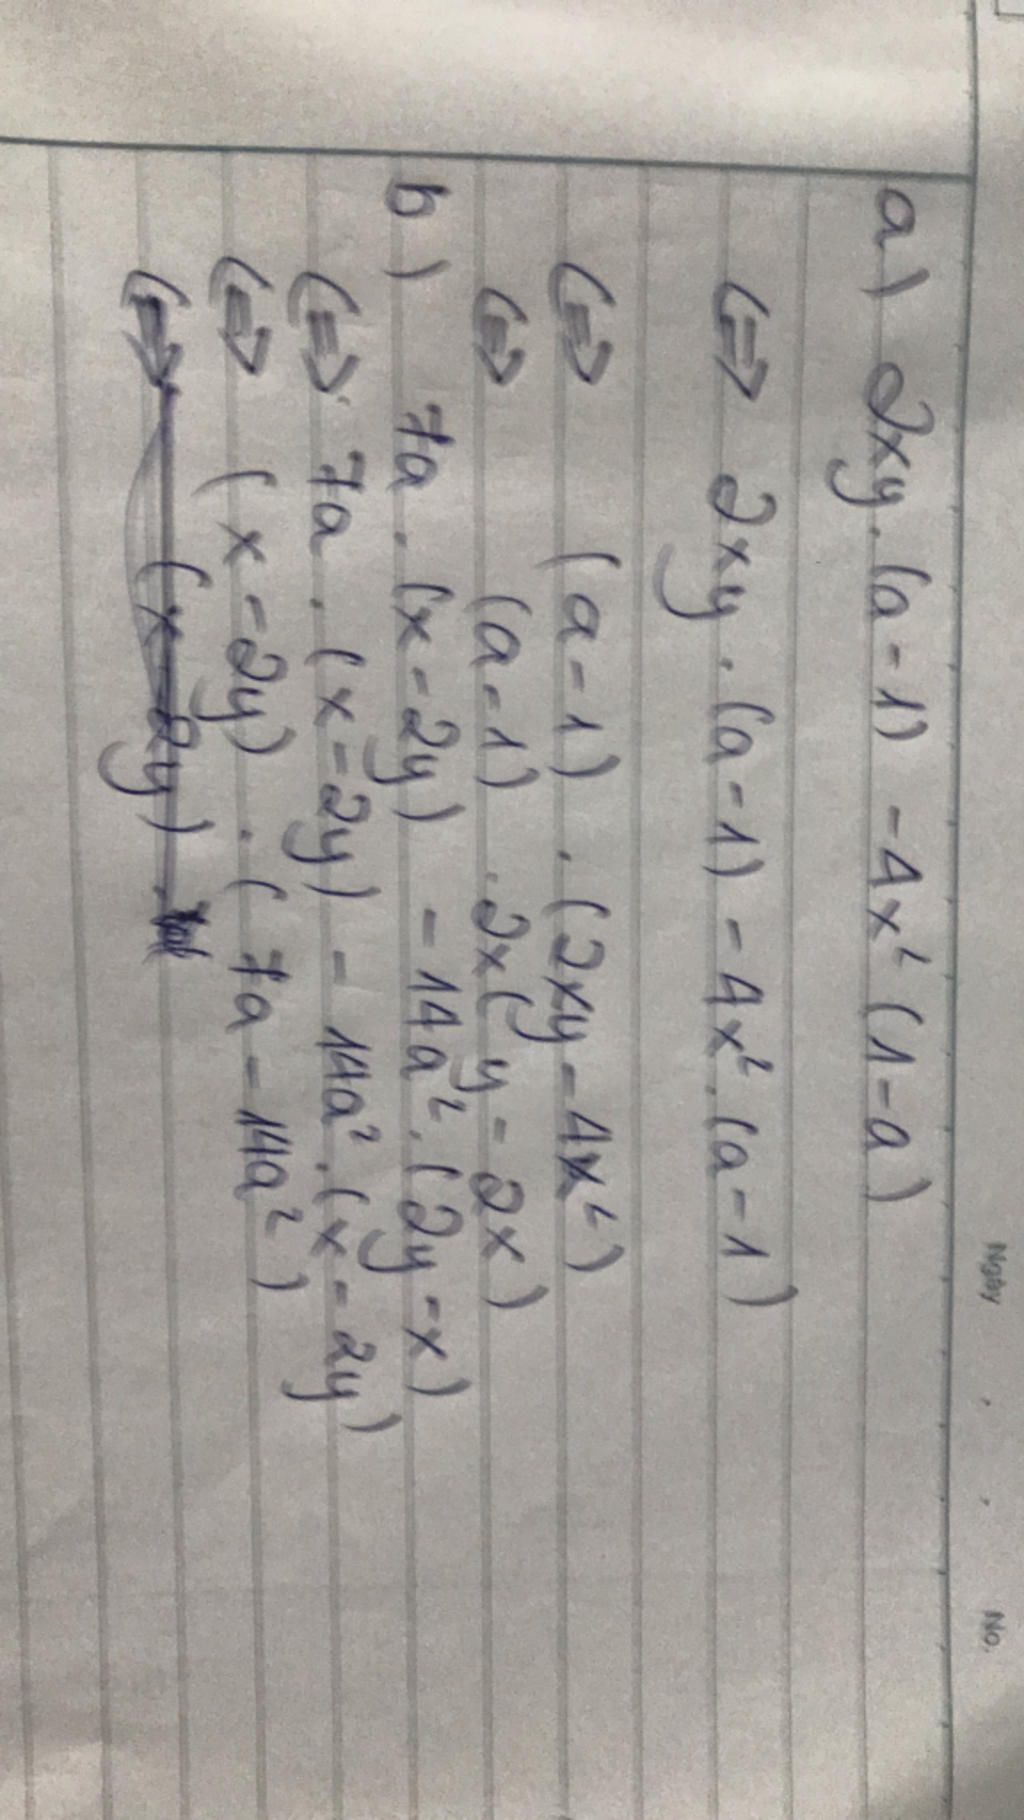 Ngày . , No.
a) 2xy. (a-1) -4x² (1-a)
<=> 2xy . (a-1) - 4x² . (a-1)
<=> (a-1) . (2xy-4x²)
<=> (a-1) . 2x(y-2x)
b) 7a . (x-2y) -14a² . (2y-x)
<=> 7a . (x-2y) - 14a² . (x-2y)
<=> (x-2y) . (7a-14a²)
<=> (x-2y) .